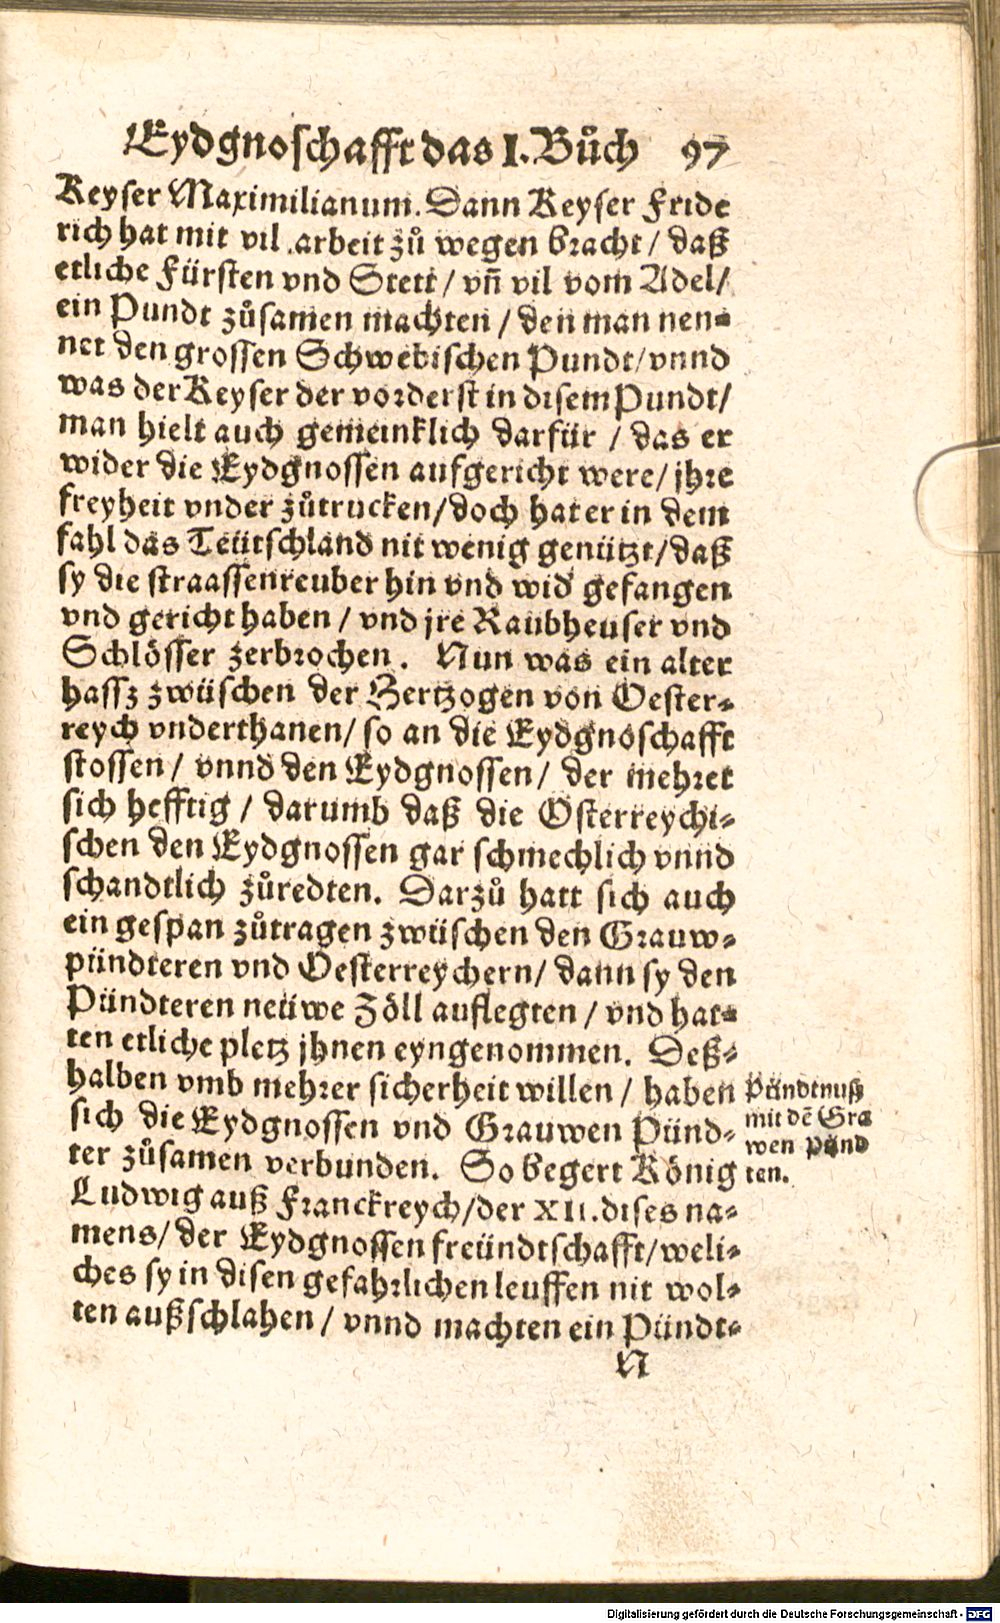 Eydgnoschafft das I. Bůch 97
Keyser Maximilianum. Dann Keyser Fride
rich hat mit vil arbeit zů wegen bracht / daß
etliche Fürsten vnd Stett / vñ vil vom Adel /
ein Pundt zůsamen machten / den man nen-
net den grossen Schwebischen Pundt / vnnd
was der Keyser der vorderst in disem Pundt /
man hielt auch gemeinklich darfür / das er
wider die Eydgnossen aufgericht were / jhre
freyheit vnder zůtrucken / doch hat er in dem
fahl das Teütschland nit wenig genützt / daß
sy die straassenreuber hin vnd wid' gefangen
vnd gericht haben / vnd jre Raubheuser vnd
Schlösser zerbrochen. Nun was ein alter
hassz zwüschen der Hertzogen von Oester-
reych vnderthanen / so an die Eydgnoschafft
stossen / vnnd den Eydgnossen / der mehret
sich hefftig / darumb daß die Osterreychi-
schen den Eydgnossen gar schmechlich vnnd
schandtlich zůredten. Darzů hatt sich auch
ein gespan zůtragen zwüschen den Grauw-
pündteren vnd Oesterreychern / dann sy den
Pündteren neüwe Zöll auflegten / vnd hat-
ten etliche pletz jhnen eyngenommen. Deß-
halben vmb mehrer sicherheit willen / haben
sich die Eydgnossen vnd Grauwen Pünd-
ter zůsamen verbunden. So begert König
Ludwig auß Franckreych / der XII. dises na-
mens / der Eydgnossen freündtschafft / weli-
ches sy in disen gefahrlichen leuffen nit wol-
ten außschlahen / vnnd machten ein Pündt-
N
Pündtnuß
mit dē Gra
wen Pünd
ten.
Digitalisierung gefördert durch die Deutsche Forschungsgemeinschaft - DFG